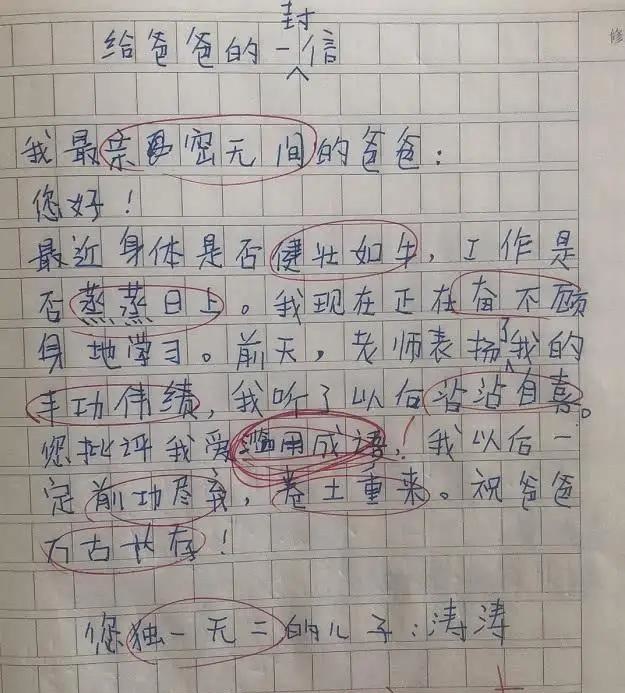 给爸爸的一封信
我最亲密无间的爸爸：
您好！
最近身体是否健壮如牛，工作是
否蒸蒸日上。我现在正在奋不顾
身地学习。前天，老师表扬了我的
丰功伟绩，我听了以后沾沾自喜。
您批评我爱滥用成语，我以后一
定前功尽弃，卷土重来。祝爸爸
万古长存！
您独一无二的儿子：涛涛
修